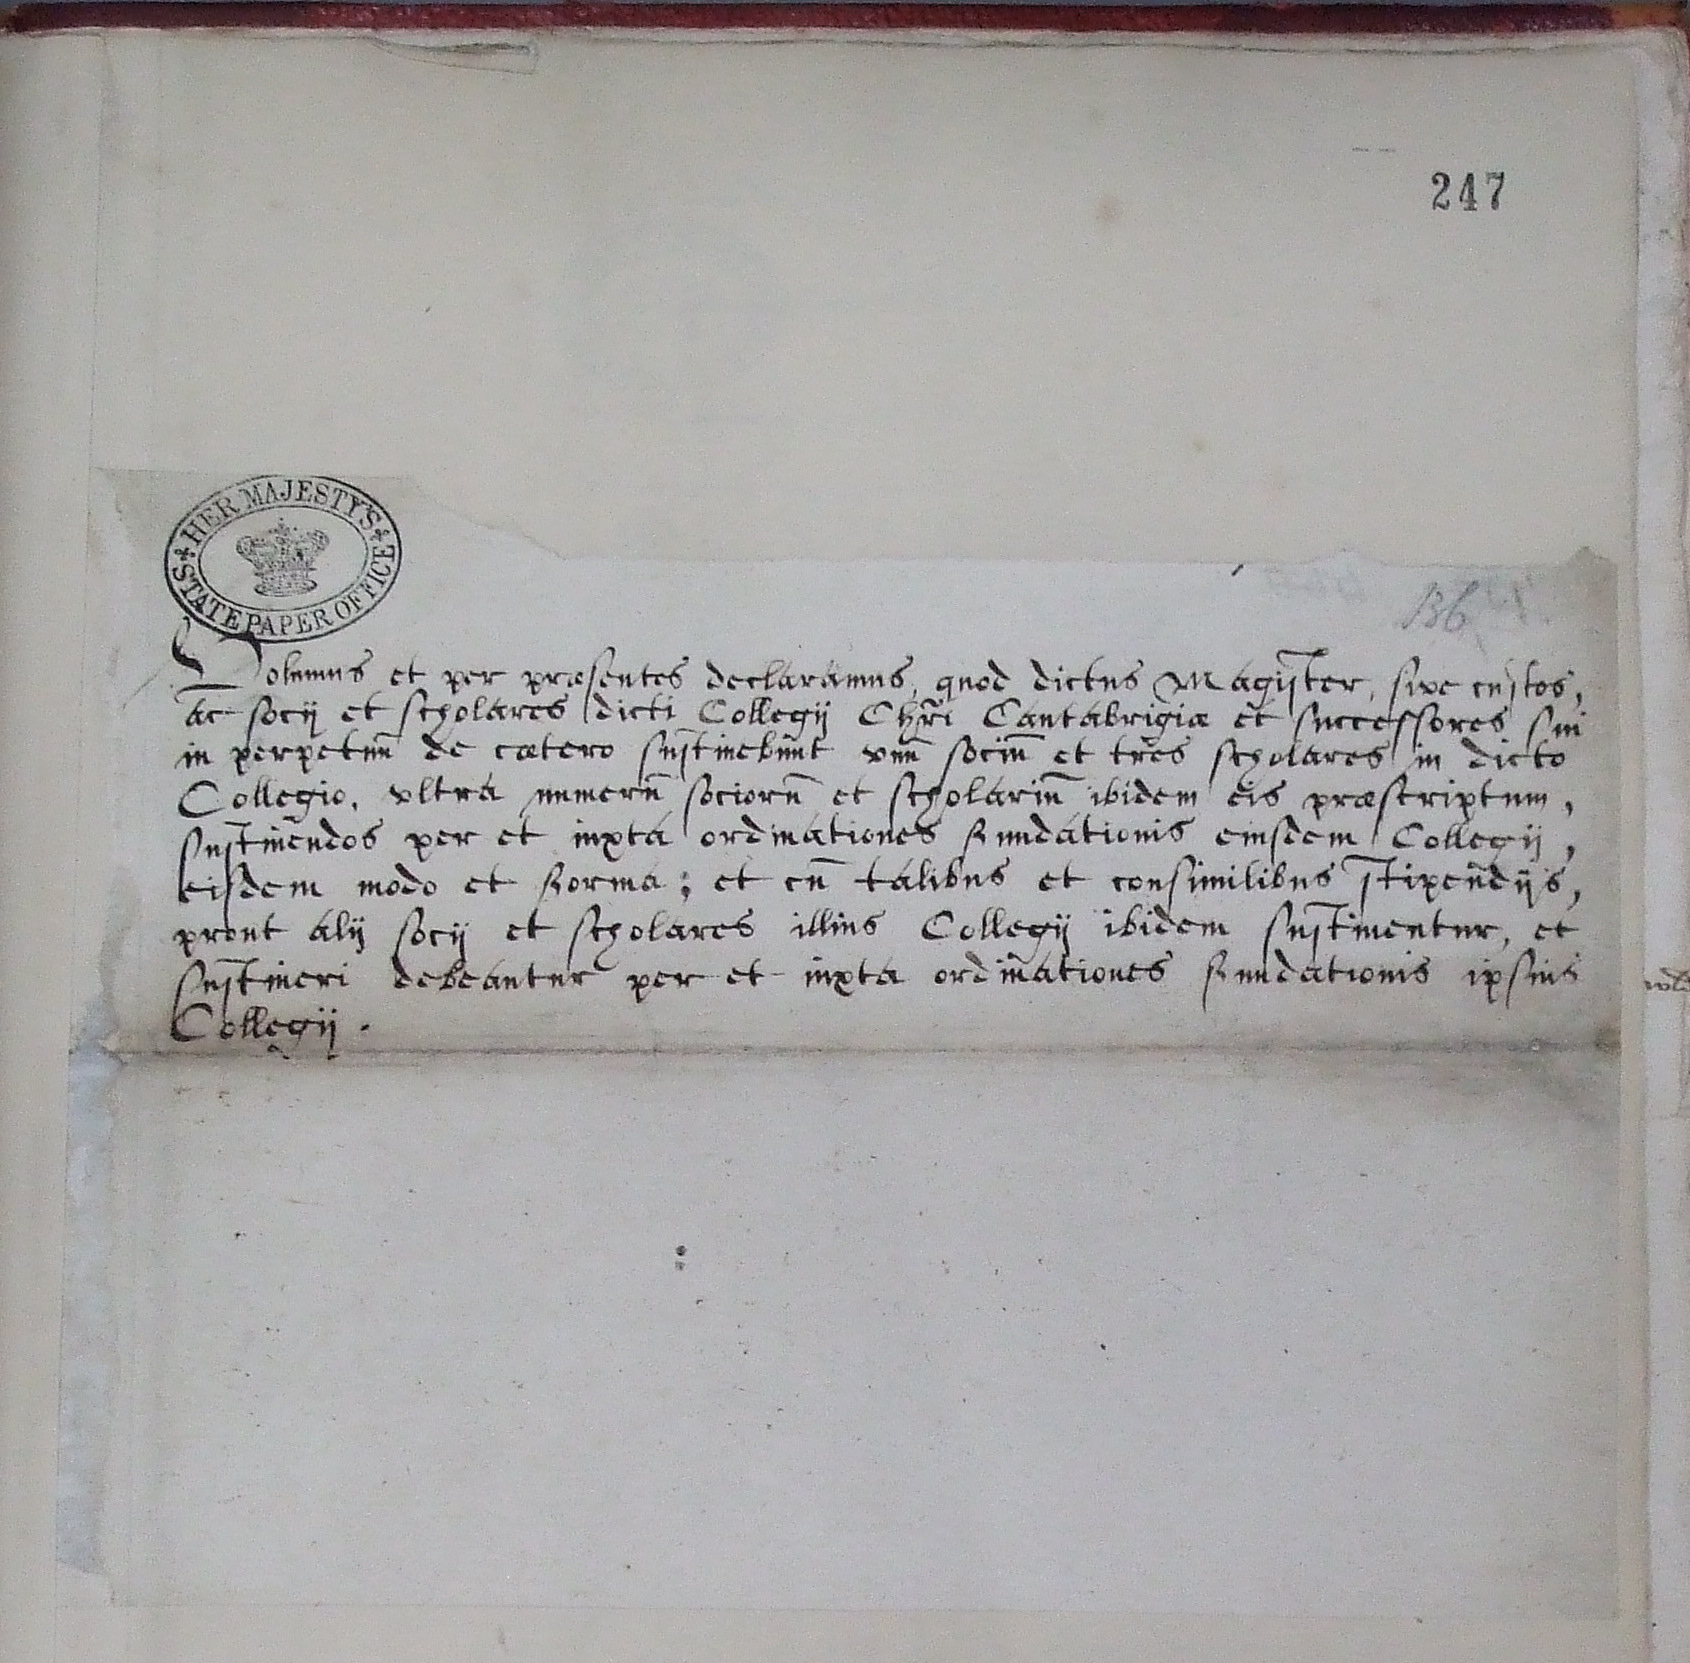 247
HER MAJESTY'S
STATE PAPER OFFICE
136
Volumus et per præsentes declaramus, quod dictus Magister, sive custos,
ac socij et scholares dicti Collegij Chr̃i Cantabrigiæ et successores sui
in perpetuũ de cætero sustinebunt vnũ sociũ et tres scholares in dicto
Collegio, vltra numerũ sociorũ et scholariũ ibidem eis præscriptum,
sustinendos per et iuxta ordinationes fundationis eiusdem Collegij,
eisdem modo et forma; et cũ talibus et consimilibus stipendijs,
prout alij socij et scholares illius Collegij ibidem sustinentur, et
sustineri debeantur per et iuxta ordinationes fundationis ipsius
Collegij.